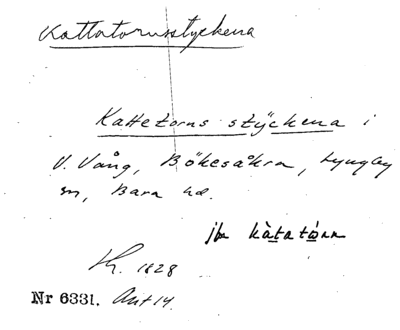 Kattatornsstyckena
Kattetorns styckena i
V. Vång, Bökesåkra, Lyngby
sn, Bara hd.
jfr kàtatòrn
Sk. 1828
Nr 6331. Akt 14.